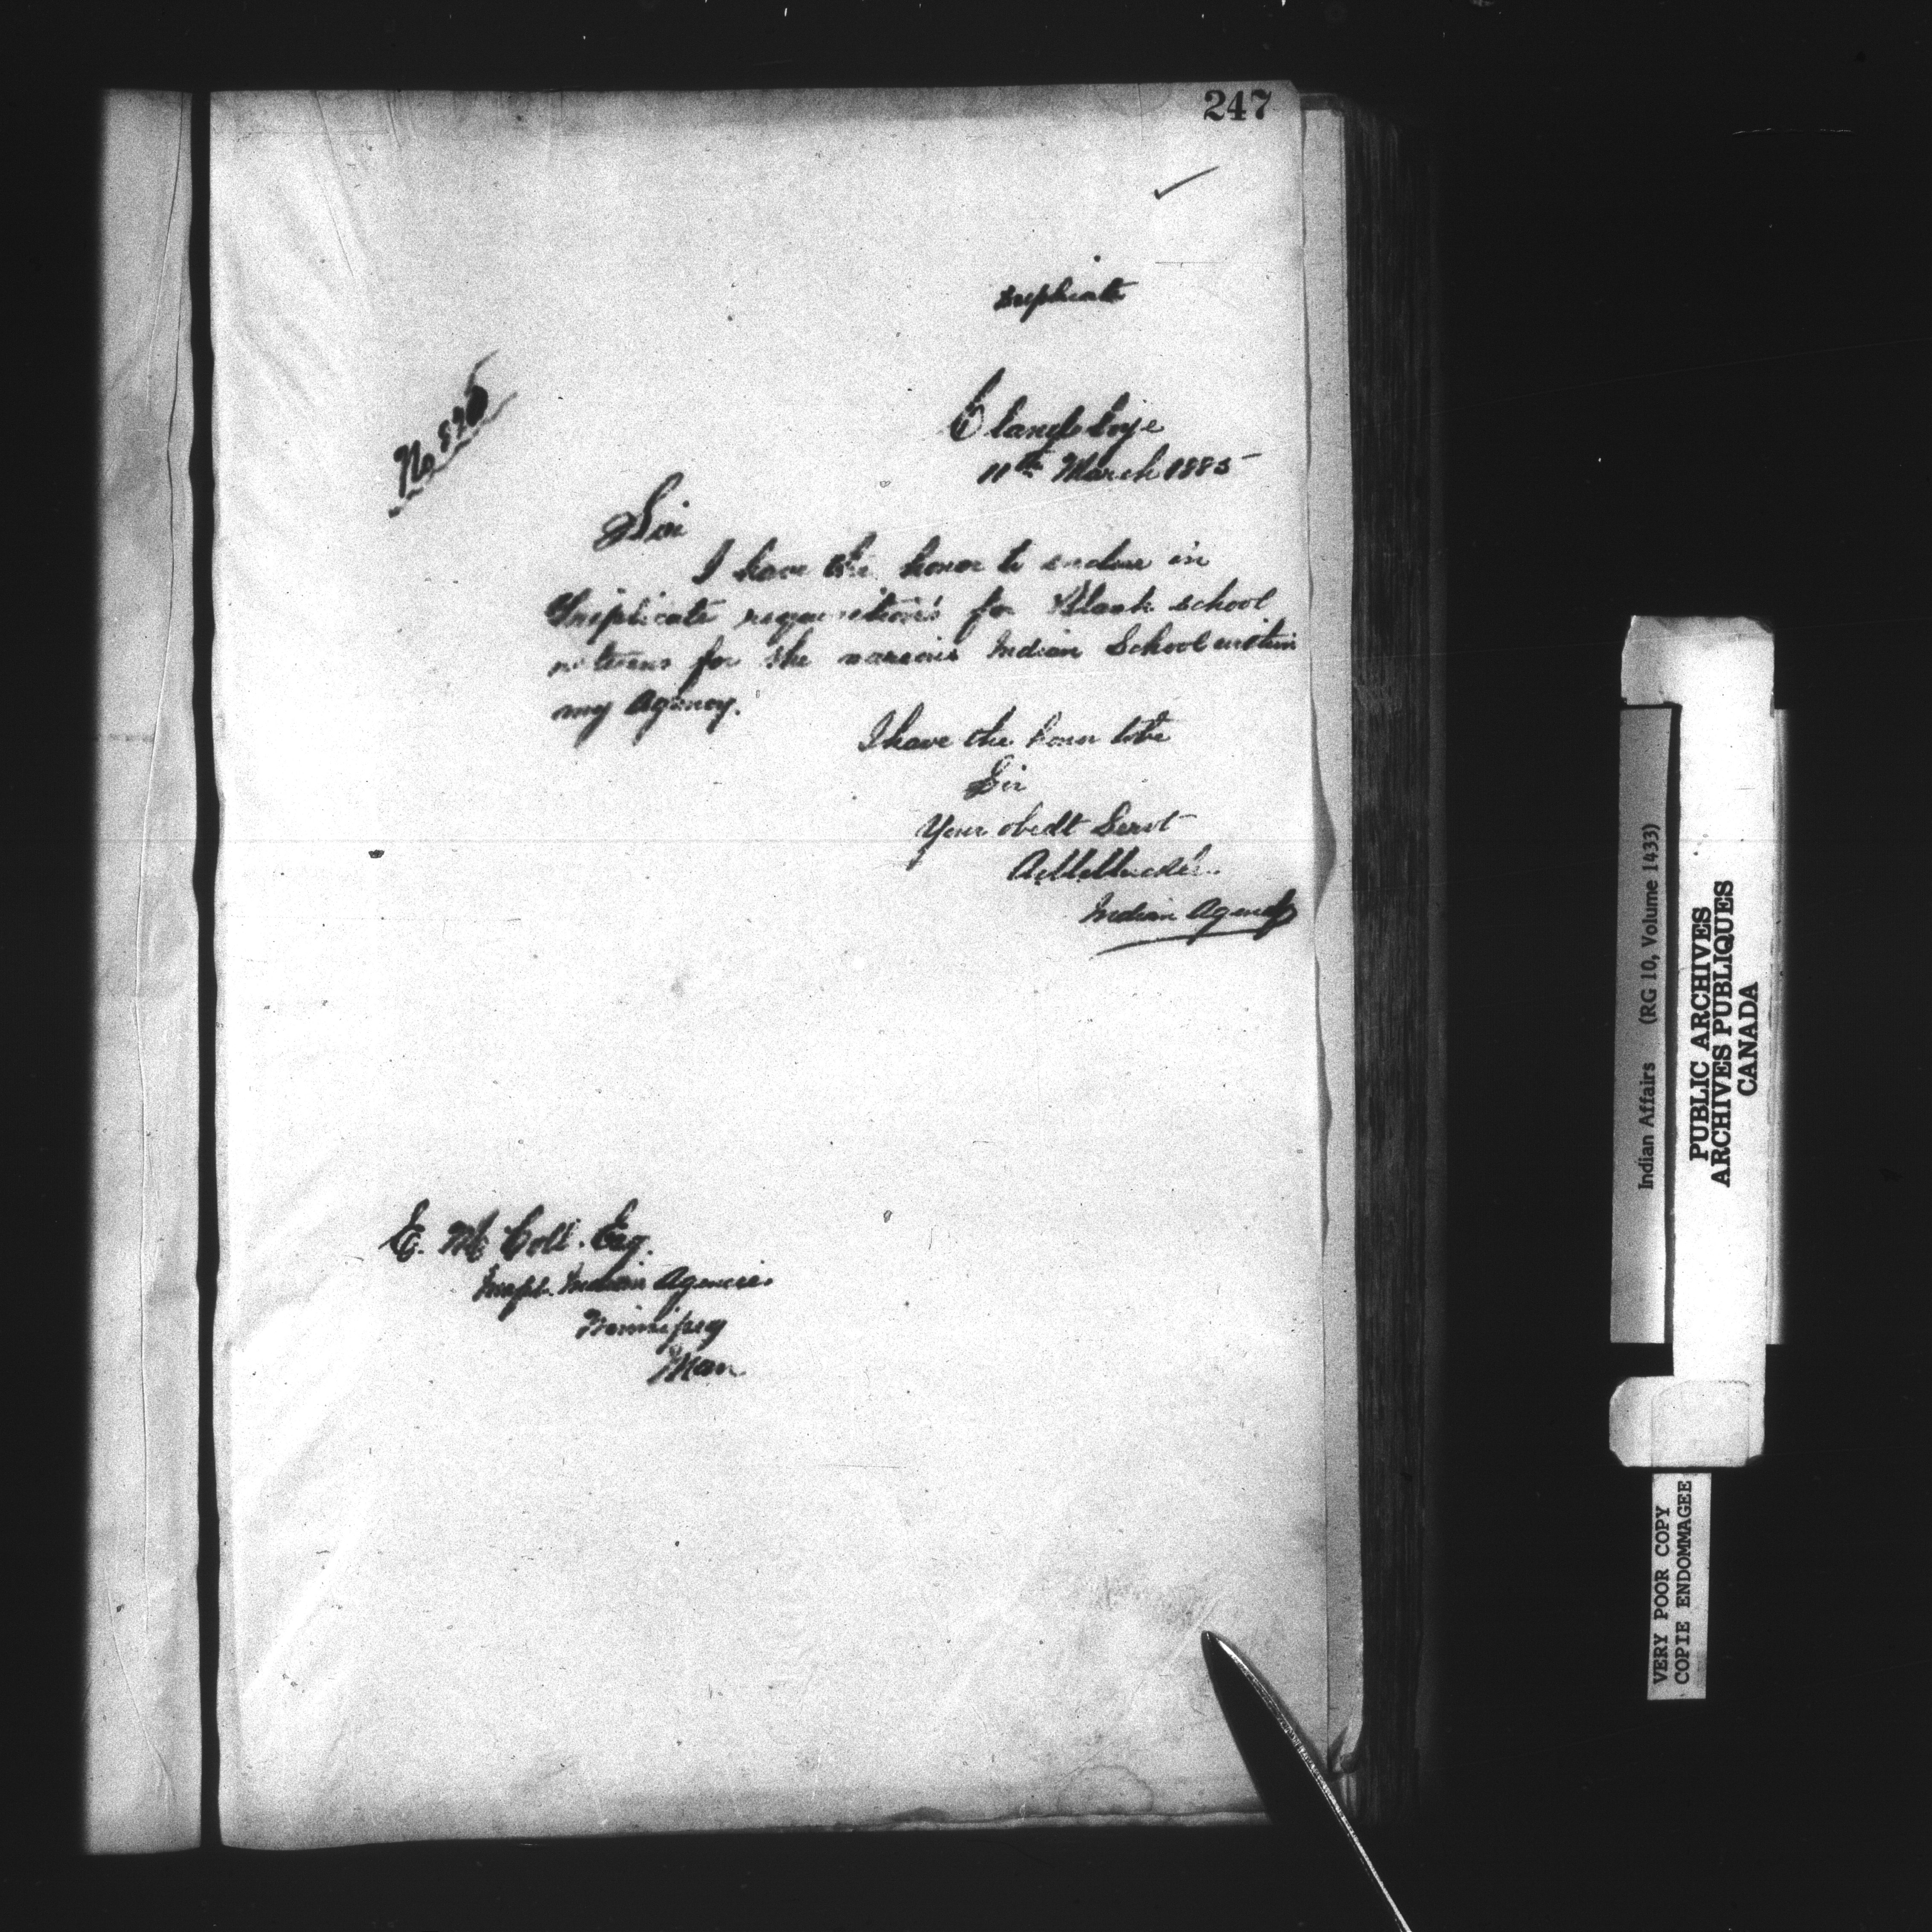 247
triplicate
No 826
Clandeboye
11th March 1885
Sir
I have the honor to enclose in
Triplicate requisitions for Blank school
returns for the various Indian School within
my Agency.
I have the honor to be
Sir
Your obedt Servt
Indian Agent
E. Mc Coll. Esq.
Inspt. Indian Agencies
Winnipeg
Man
Indian Affairs (RG 10, Volume 1433)
PUBLIC ARCHIVES
ARCHIVES PUBLIQUES
CANADA
VERY POOR COPY
COPIE ENDOMMAGEE